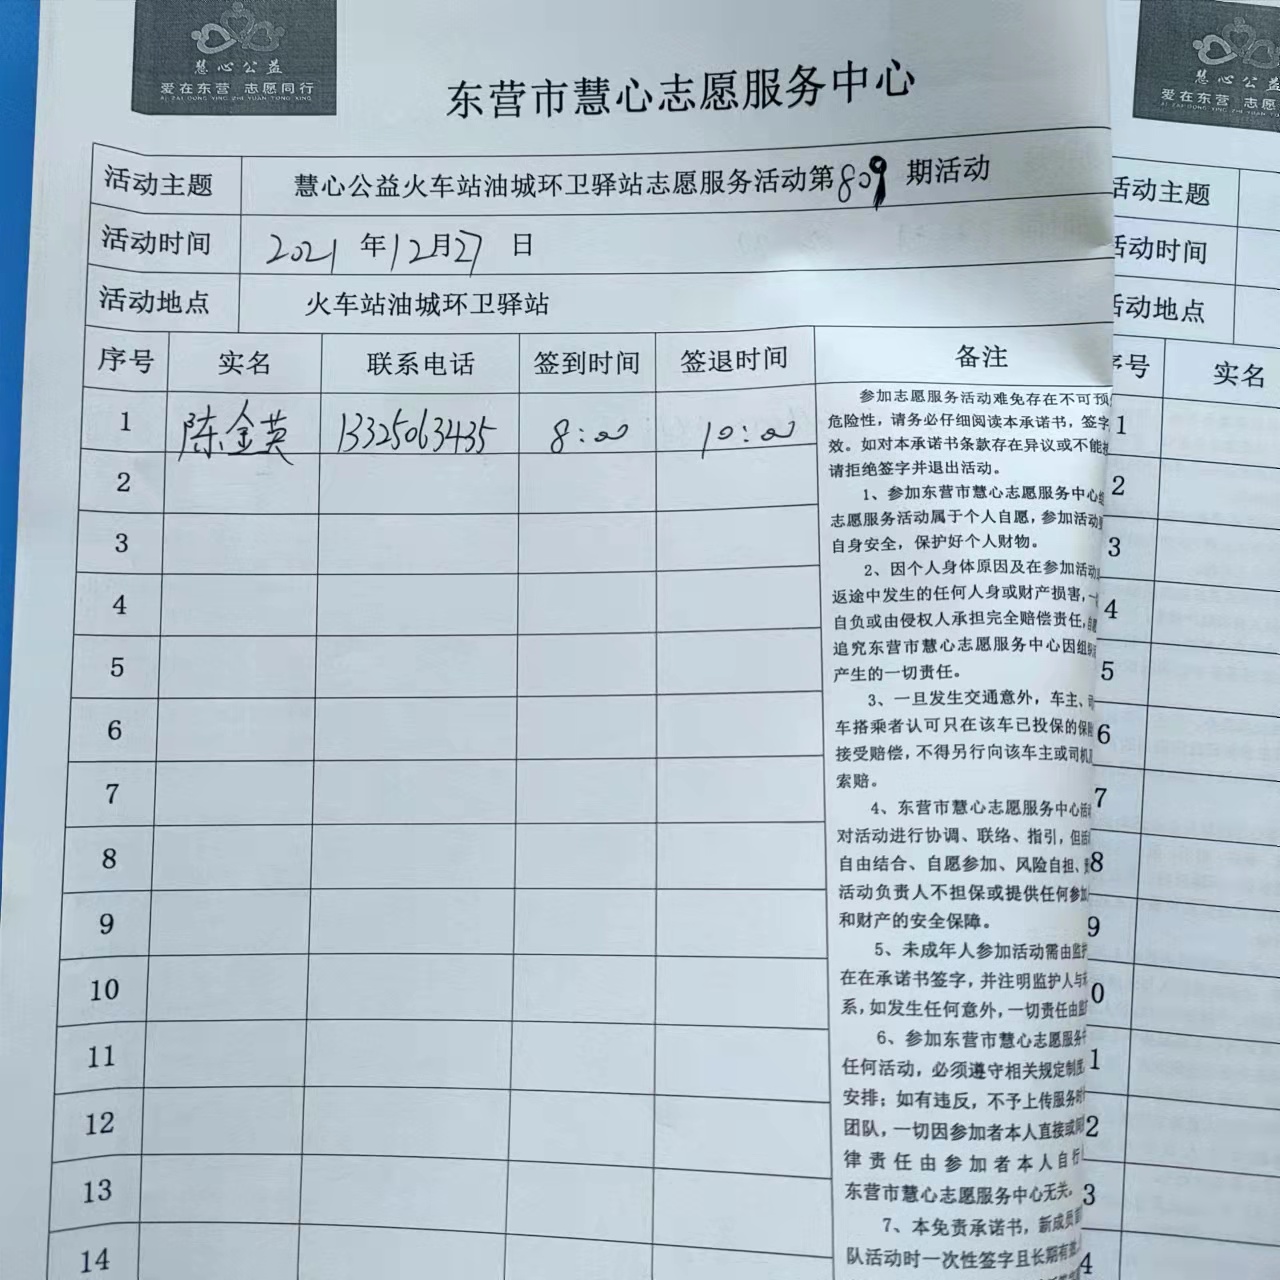 慧心公益
爱在东营 志愿同行
AI ZAI DONG YING ZHI YUAN TONG XING
东营市慧心志愿服务中心
活动主题 慧心公益火车站油城环卫驿站志愿服务活动第809期活动
活动时间 2021年12月27日
活动地点 火车站油城环卫驿站
序号 实名 联系电话 签到时间 签退时间 备注
1 陈金英 13325063435 8:00 10:00
2
3
4
5
6
7
8
9
10
11
12
13
14
参加志愿服务活动难免存在不可预
危险性，请务必仔细阅读本承诺书，签字
效。如对本承诺书条款存在异议或不能
请拒绝签字并退出活动。
1、参加东营市慧心志愿服务中心
志愿服务活动属于个人自愿，参加活动
自身安全，保护好个人财物。
2、因个人身体原因及在参加活动
返途中发生的任何人身或财产损害，一
自负或由侵权人承担完全赔偿责任，
追究东营市慧心志愿服务中心因组
产生的一切责任。
3、一旦发生交通意外，车主、司
车搭乘者认可只在该车已投保的保
接受赔偿，不得另行向该车主或司机
索赔。
4、东营市慧心志愿服务中心
对活动进行协调、联络、指引，但
自由结合、自愿参加、风险自担、
活动负责人不担保或提供任何参加
和财产的安全保障。
5、未成年人参加活动需由监护
在在承诺书签字，并注明监护人与
系，如发生任何意外，一切责任由
6、参加东营市慧心志愿服务
任何活动，必须遵守相关规定制度
安排；如有违反，不予上传服务时
团队，一切因参加者本人直接或
律责任由参加者本人自行
东营市慧心志愿服务中心无关。
7、本免责承诺书，新成员
队活动时一次性签字且长期有
慧心公益
爱在东营 志愿
活动主题
活动时间
活动地点
序号 实名
1
2
3
4
5
6
7
8
9
0
1
2
3
4